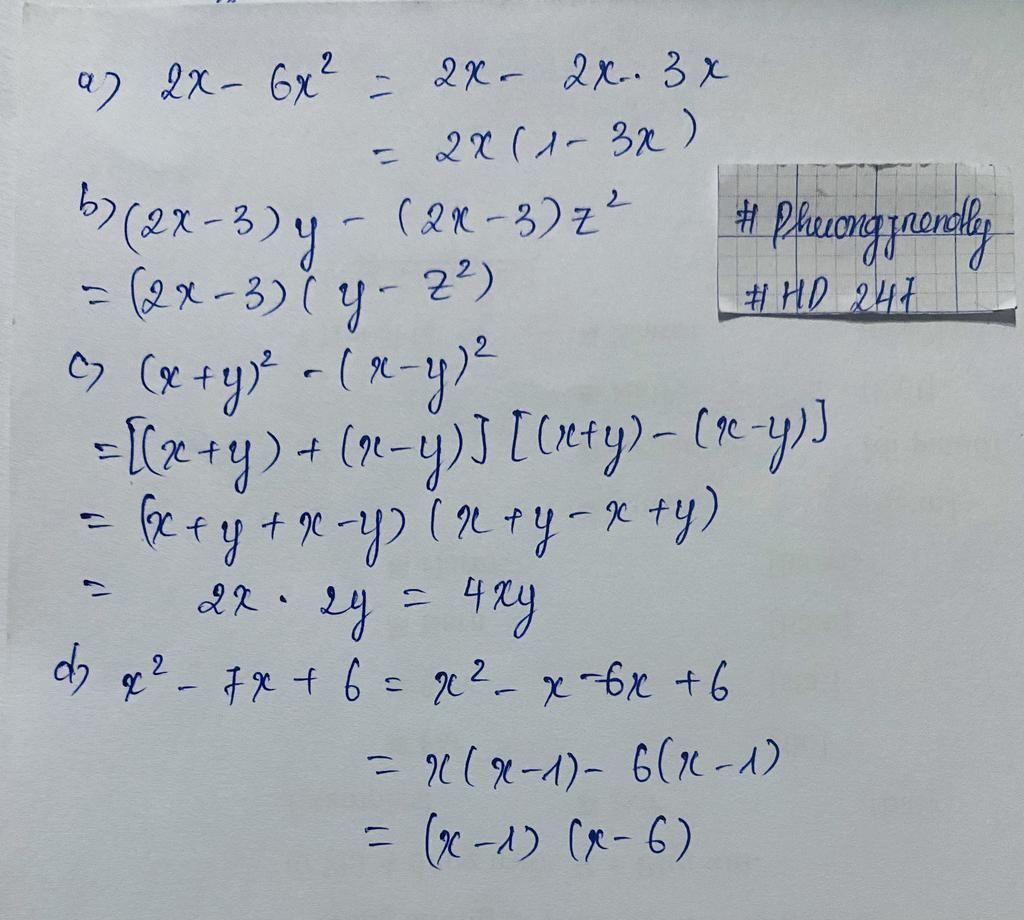 a) 2x - 6x² = 2x - 2x . 3x
= 2x (1 - 3x)
b) (2x - 3) y - (2x - 3) z²
= (2x - 3) ( y - z²)
# Phuongfriendly
# HD 247
c) (x + y)² - ( x - y)²
= [(x + y) + (x - y)] [(x + y) - (x - y)]
= (x + y + x - y) (x + y - x + y)
= 2x . 2y = 4xy
d) x² - 7x + 6 = x² - x - 6x + 6
= x(x - 1) - 6(x - 1)
= (x - 1) (x - 6)